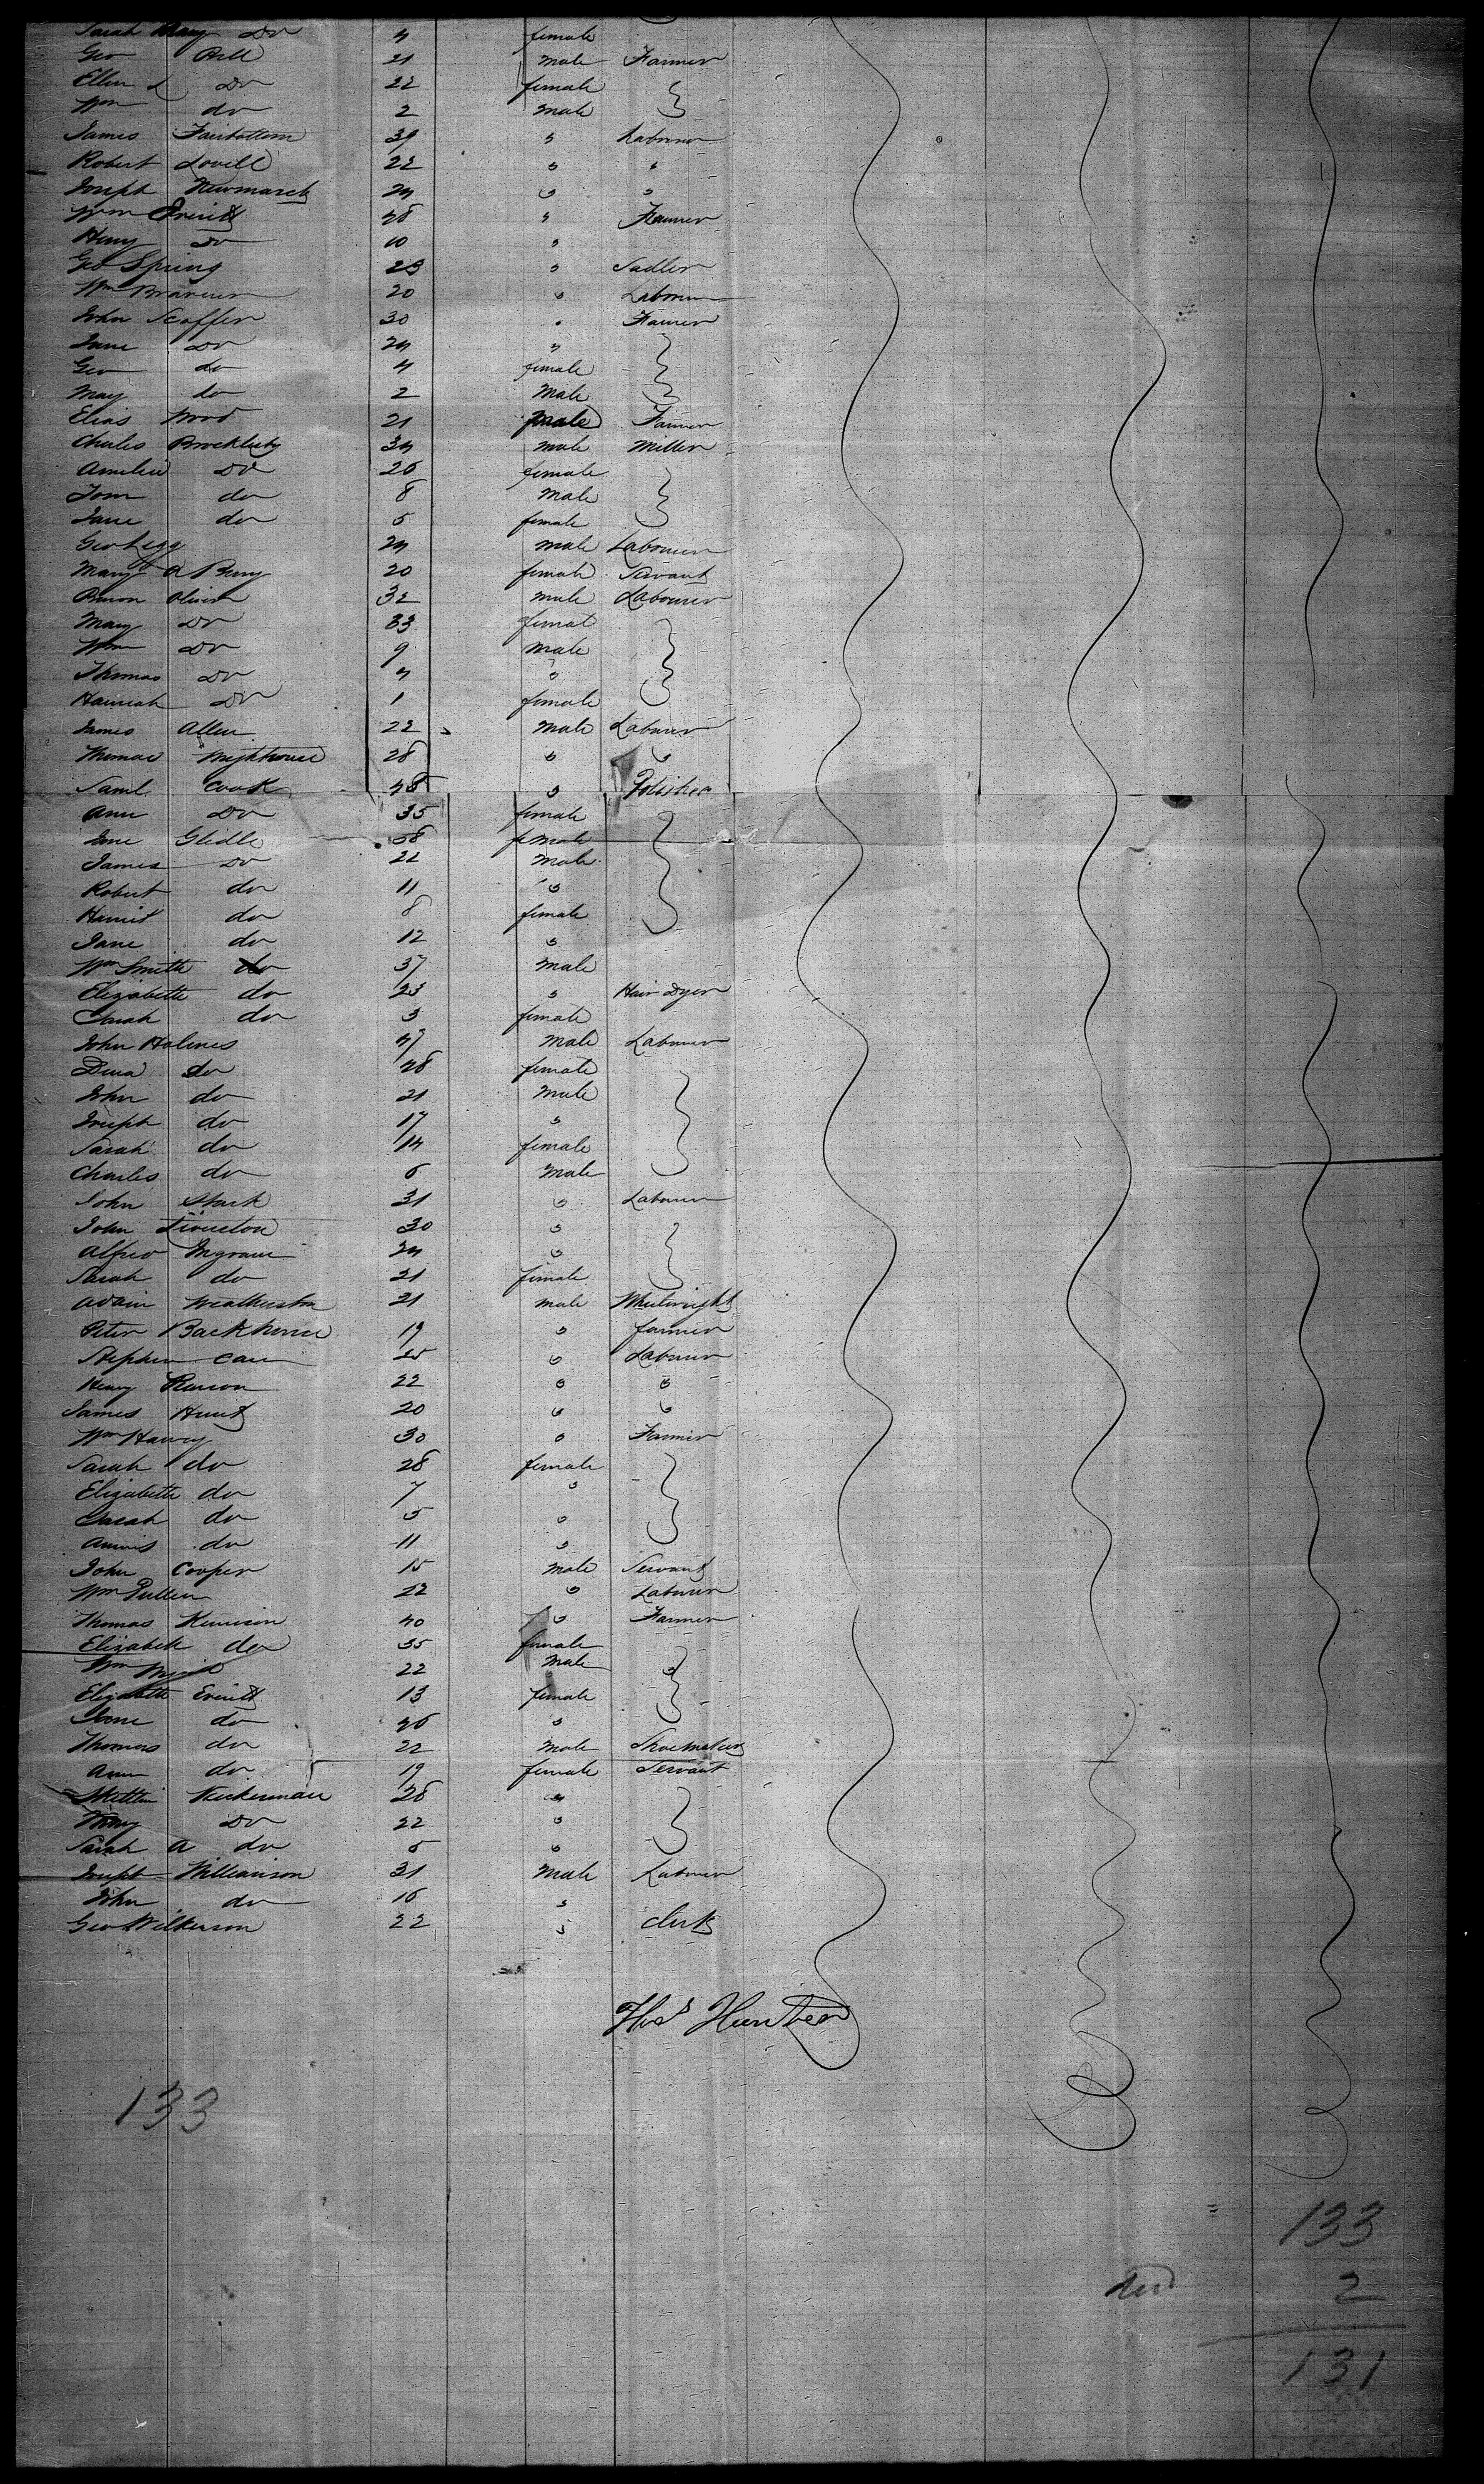 Sarah Mary Do 4 female
Geo Bell 21 male Farmer
Ellen L Do 22 female
Wm do 2 male
James Fairbottom 39 " Labourer
Robert Lovell 22 " "
Joseph Newmarch 24 " "
Wm Everitt 48 " Farmer
Henry Do 10 "
Geo Spring 23 " Sadler
Wm 20 " Labourer
John Scoffin 30 " Farmer
Jane Do 24 "
Geo do 4 female
Mary do 2 Male
Elias Wood 21 male Farmer
Charles Brocklesby 34 male Miller
Amelia Do 26 female
Tom do 8 Male
Jane do 5 female
Geo Legg 24 male Labourer
Mary A Berry 20 female Servant
Oliver 32 male Labourer
Mary Do 33 femal
Wm Do 9 male
Thomas Do 4 "
Hannah Do 1 female
James Allen 22 Male Labourer
Thomas 28 " "
Saml Cook 48 "
Ann Do 35 female
Jane Gledle 38 female
James Do 22 Male
Robert do 11 "
Harriet do 8 female
Jane do 12 "
Wm Smith do 37 Male
Elizabeth do 23 " Hair Dyer
Sarah do 3 female
John Holmes 47 Male Labourer
do 48 female
John do 21 Male
Joseph do 17 "
Sarah do 14 female
Charles do 6 Male
John 31 " Labourer
John 30 "
Alfred Ingram 24 "
Sarah do 21 female
Adam 21 male Whelwright
Peter Backhouse 19 " farmer
Stephen 25 " Labourer
Henry 22 " "
James Hunt 20 " "
Wm Harvey 30 " Farmer
Sarah do 28 female
Elizabeth do 7 "
Sarah do 5 "
do 11 "
John Cooper 15 male Servant
Wm Pullen 22 " Labourer
Thomas 40 " Farmer
Elizabeth do 35 female
Wm 22 Male
Elizabeth Everitt 13 female
Jane do 46 "
Thomas do 22 Male Shoemaker
Ann do 19 female Servant
28 "
Mary Do 22 "
Sarah A do 5 "
Joseph Williamson 31 Male Labourer
John do 16 "
Geo Wilkerson 22 " clerk
Thos Hunter
133
133
2
131